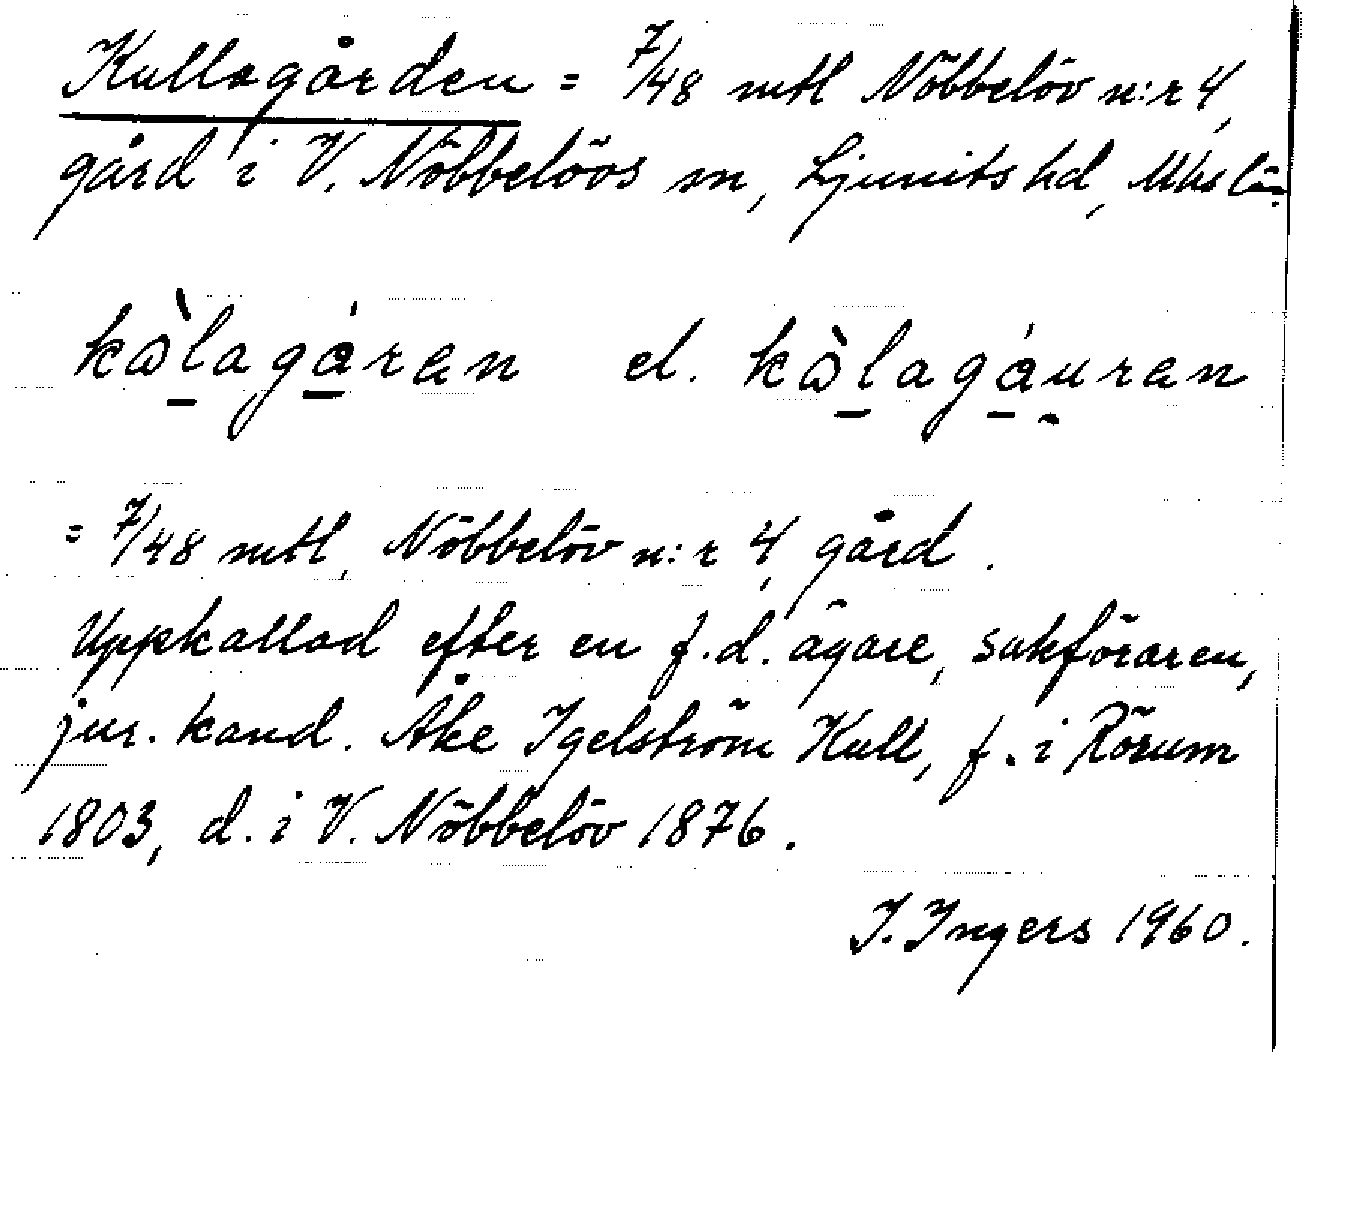 Kullagården = 7/48 mtl Nöbbelöv n:r 4,
gård i V. Nöbbelövs sn, Ljunits hd, Mhs län.
kòlagáren el. kòlagáuren
= 7/48 mtl, Nöbbelöv n:r 4, gård.
Uppkallad efter en f.d. ägare, sakföraren,
jur. kand. Åke Igelström Kull, f. i Rörum
1803, d. i V. Nöbbelöv 1876.
I. Ingers 1960.